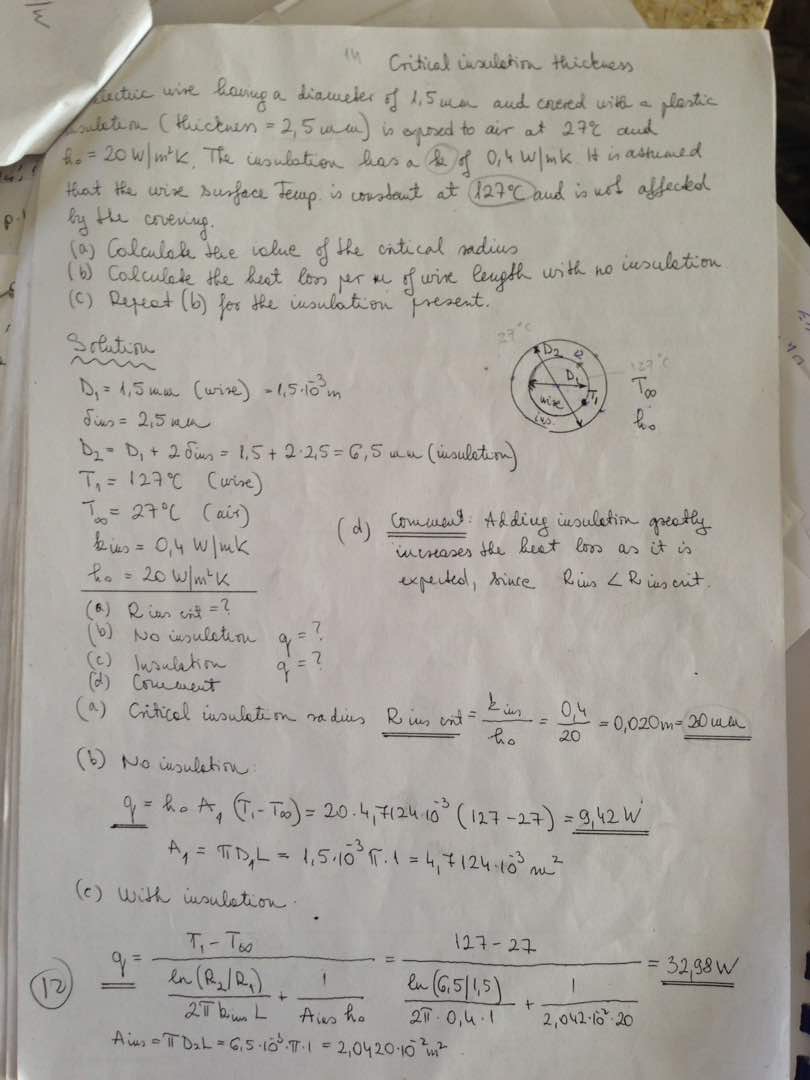 14
Critical insulation thickness
electric wire having a diameter of 1,5 mm and covered with a plastic
insulation (thickness = 2,5 mm) is exposed to air at 27°C and
h₀ = 20 W/m²K. The insulation has a k of 0,4 W/mK. It is assumed
that the wire surface Temp. is constant at 127°C and is not affected
by the covering.
(a) Calculate the value of the critical radius
(b) Calculate the heat loss per m of wire length with no insulation
(c) Repeat (b) for the insulation present.
Solution
D₁ = 1,5 mm (wire) = 1,5·10⁻³ m
δins = 2,5 mm
D₂ = D₁ + 2 δins = 1,5 + 2·2,5 = 6,5 mm (insulation)
T₁ = 127°C (wire)
T∞ = 27°C (air)
kins = 0,4 W/mK
h₀ = 20 W/m²K
27°C
D₂
127°C
D₁
T₁
wire
ins.
T∞
h₀
(d) Comment: Adding insulation greatly
increases the heat loss as it is
expected, since Rins < Rins crit.
(a) Rins crit = ?
(b) No insulation q = ?
(c) Insulation q = ?
(d) Comment
(a) Critical insulation radius Rins crit = kins/h₀ = 0,4/20 = 0,020m = 20 mm
(b) No insulation:
q = h₀ A₁ (T₁ - T∞) = 20·4,7124·10⁻³ (127 - 27) = 9,42 W
A₁ = πD₁L = 1,5·10⁻³ π·1 = 4,7124·10⁻³ m²
(c) With insulation.
12
q = (T₁ - T∞) / (ln(R₂/R₁)/(2πkins L) + 1/(Ains h₀)) = (127 - 27) / (ln(6,5/1,5)/(2π·0,4·1) + 1/(2,042·10⁻²·20)) = 32,98 W
Ains = πD₂L = 6,5·10⁻³·π·1 = 2,0420·10⁻² m²